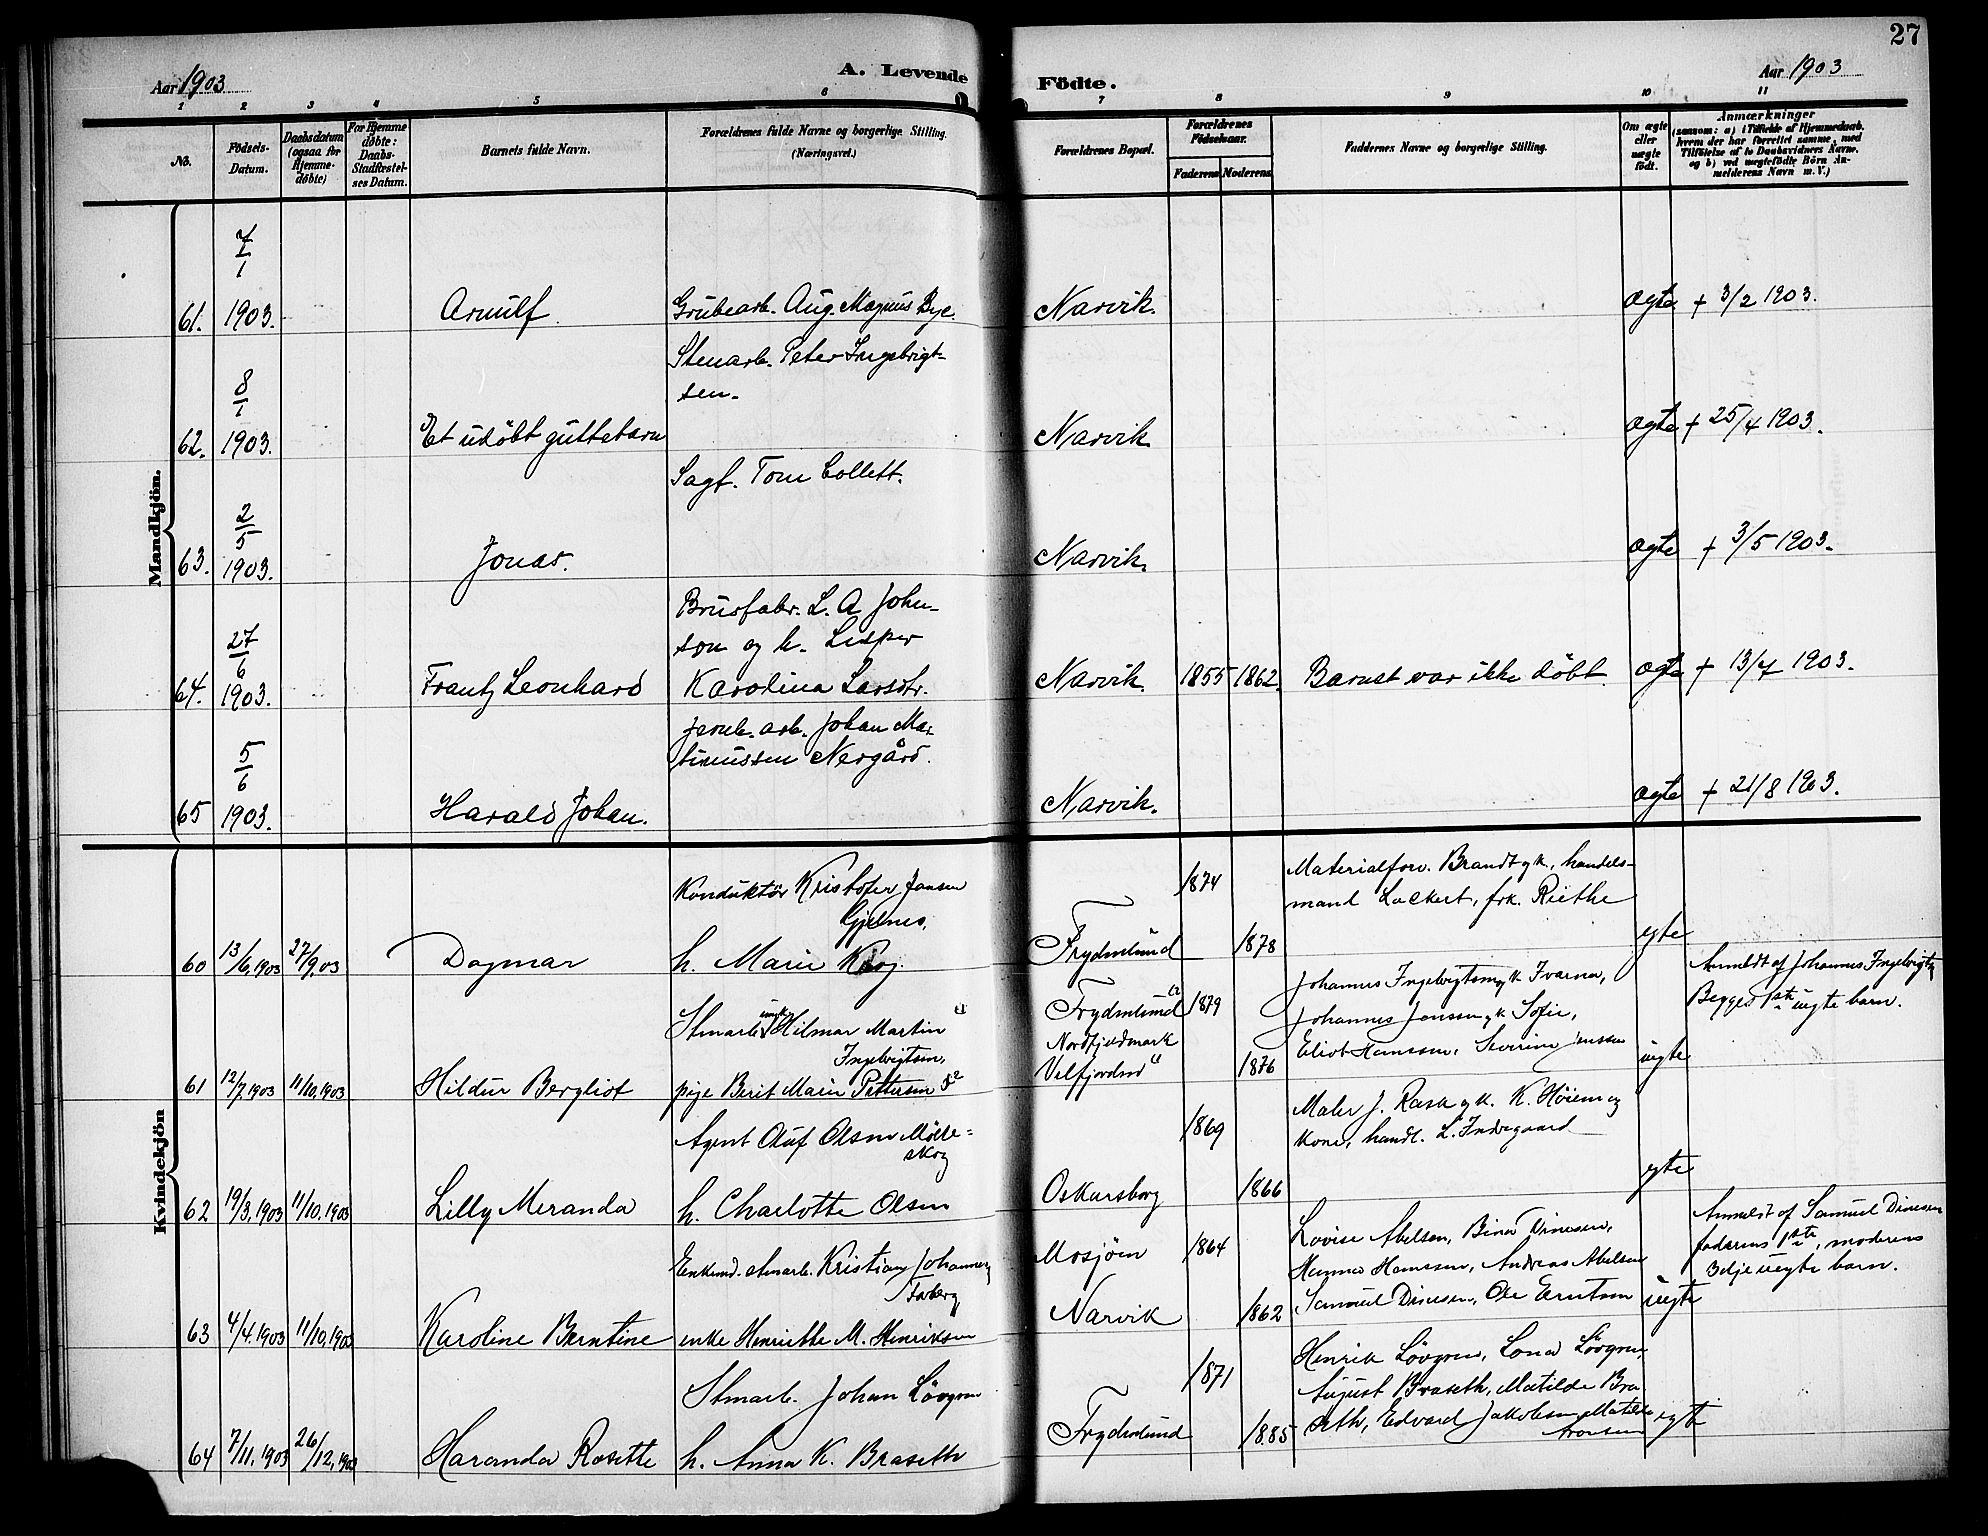 27
Aar 1903
A. Levende Födte.
Aar 1903
1 2 3 4 5 6 7 8 9 10 11
No.
Födsels-Datum.
Daabsdatum (ogsaa for Hjemme-döbte)
For Hjemme döbte: Daabs-Stadfæstel-ses Datum.
Barnets fulde Navn.
Forældrenes fulde Navne og borgerlige Stilling. (Næringsvei.)
Forældrenes Bopæl.
Forældrenes Födselsaar.
Faderens Moderens
Faddernes Navne og borgerlige Stilling.
Om ægte eller uægte födt.
Anmærkninger
(saasom: a) i Tilfælde af Hjemmedaab, hvem der har forrettet samme, med Tilföielse af to Daabsvidners Navne, og b) ved uægtefödte Börn An-melderens Navn m. V.)
Mandkjön.
61. 7/1 1903. Arnulf Grubearb. Aug. Magnus Bye. Narvik. ægte + 3/2 1903.
62. 8/1 1903. Et udöbt guttebarn Stenarb. Peter Ingebrigt-
sen. Narvik ægte + 25/4 1903.
63. 2/5 1903. Jonas. Sagf. Tom Collett. Narvik. ægte + 3/5 1903.
64. 27/6 1903. Frantz Leonhard Brusfabr. L. A John-
son og h.
Karolina Larsdr. Narvik. 1855 1862. Barnet var ikke döbt. ægte + 13/7 1903.
65 5/6 1903. Harald Johan. Jernb. arb. Johan Mar-
tinussen Nergård. Narvik. ægte + 21/8 1903.
Kvindekjön
60 13/6, 1903 27/9, 03 Dagmar Konduktör Kristofer Jansen
Gjelnes,
h. Marie Frydenlund 1874 1878 Materialforv. Brandt og k., handels-
mand Lockert, frk. Riethe egte
61 12/7, 1903 11/10, 1903 Hildur Bergliot Stenarb. Hilmar Martin
Ingebrigtsen,
pige Berit Marie Pettersen Frydenlund
Nordfjeldmark
Velfjorden 1879 1876 Johannes Ingebrigtsen og k Ivarna,
Johannes Jensen og k Sofie,
Eliot Hanssen, Severine Jenssen uegte Anmeldt af Johannes Ingebrigts
Begges 1ste uegte barn.
62 19/3, 1903 11/10, 1903 Lilly Meranda Agent Oluf Olsen Mölle-
skog
h. Charlotte Olsen Oskarsborg 1869 1866 Maler J. Rask og k. K. Höiem og
kone, handl. L. Indregaard egte
63 4/4, 1903 11/10, 1903 Karoline Berntine Enkemd. stenarb. Kristian Johannes
Faberg
enke Henriette M. Henriksen Mosjöen
Narvik 1864 1862 Lovise Abelsen, Bina Dinesen,
Hanna Hanssen, Andreas Abelsen
Samuel Dinesen, Ole Erntsen uegte Anmeldt af Samuel Dinesen
faderens 1ste, moderens
3dje uegte barn.
64 7/11, 1903 26/12, 1903 Haranda Rosette Stenarb. Johan Lövgren
h. Anna K. Braseth Frydenlund 1871 1885 Henrik Lövgren, Lona Lövgren,
August Braseth, Matilde Bra-
seth, Edvard Jakobsen, Matilde
Aronsen egte